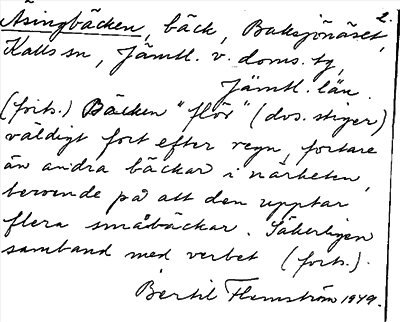 2.
Åsingbäcken, bäck, Baksjönäset,
Kalls sn, Jämtl. v. doms. tg,
Jämtl. län.
(forts.) Bäcken "flör" (dvs. stiger)
väldigt fort efter regn, fortare
än andra bäckar i närheten,
beroende på att den upptar
flera småbäckar. Säkerligen
samband med verbet (forts.).
Bertil Flemström 1949.